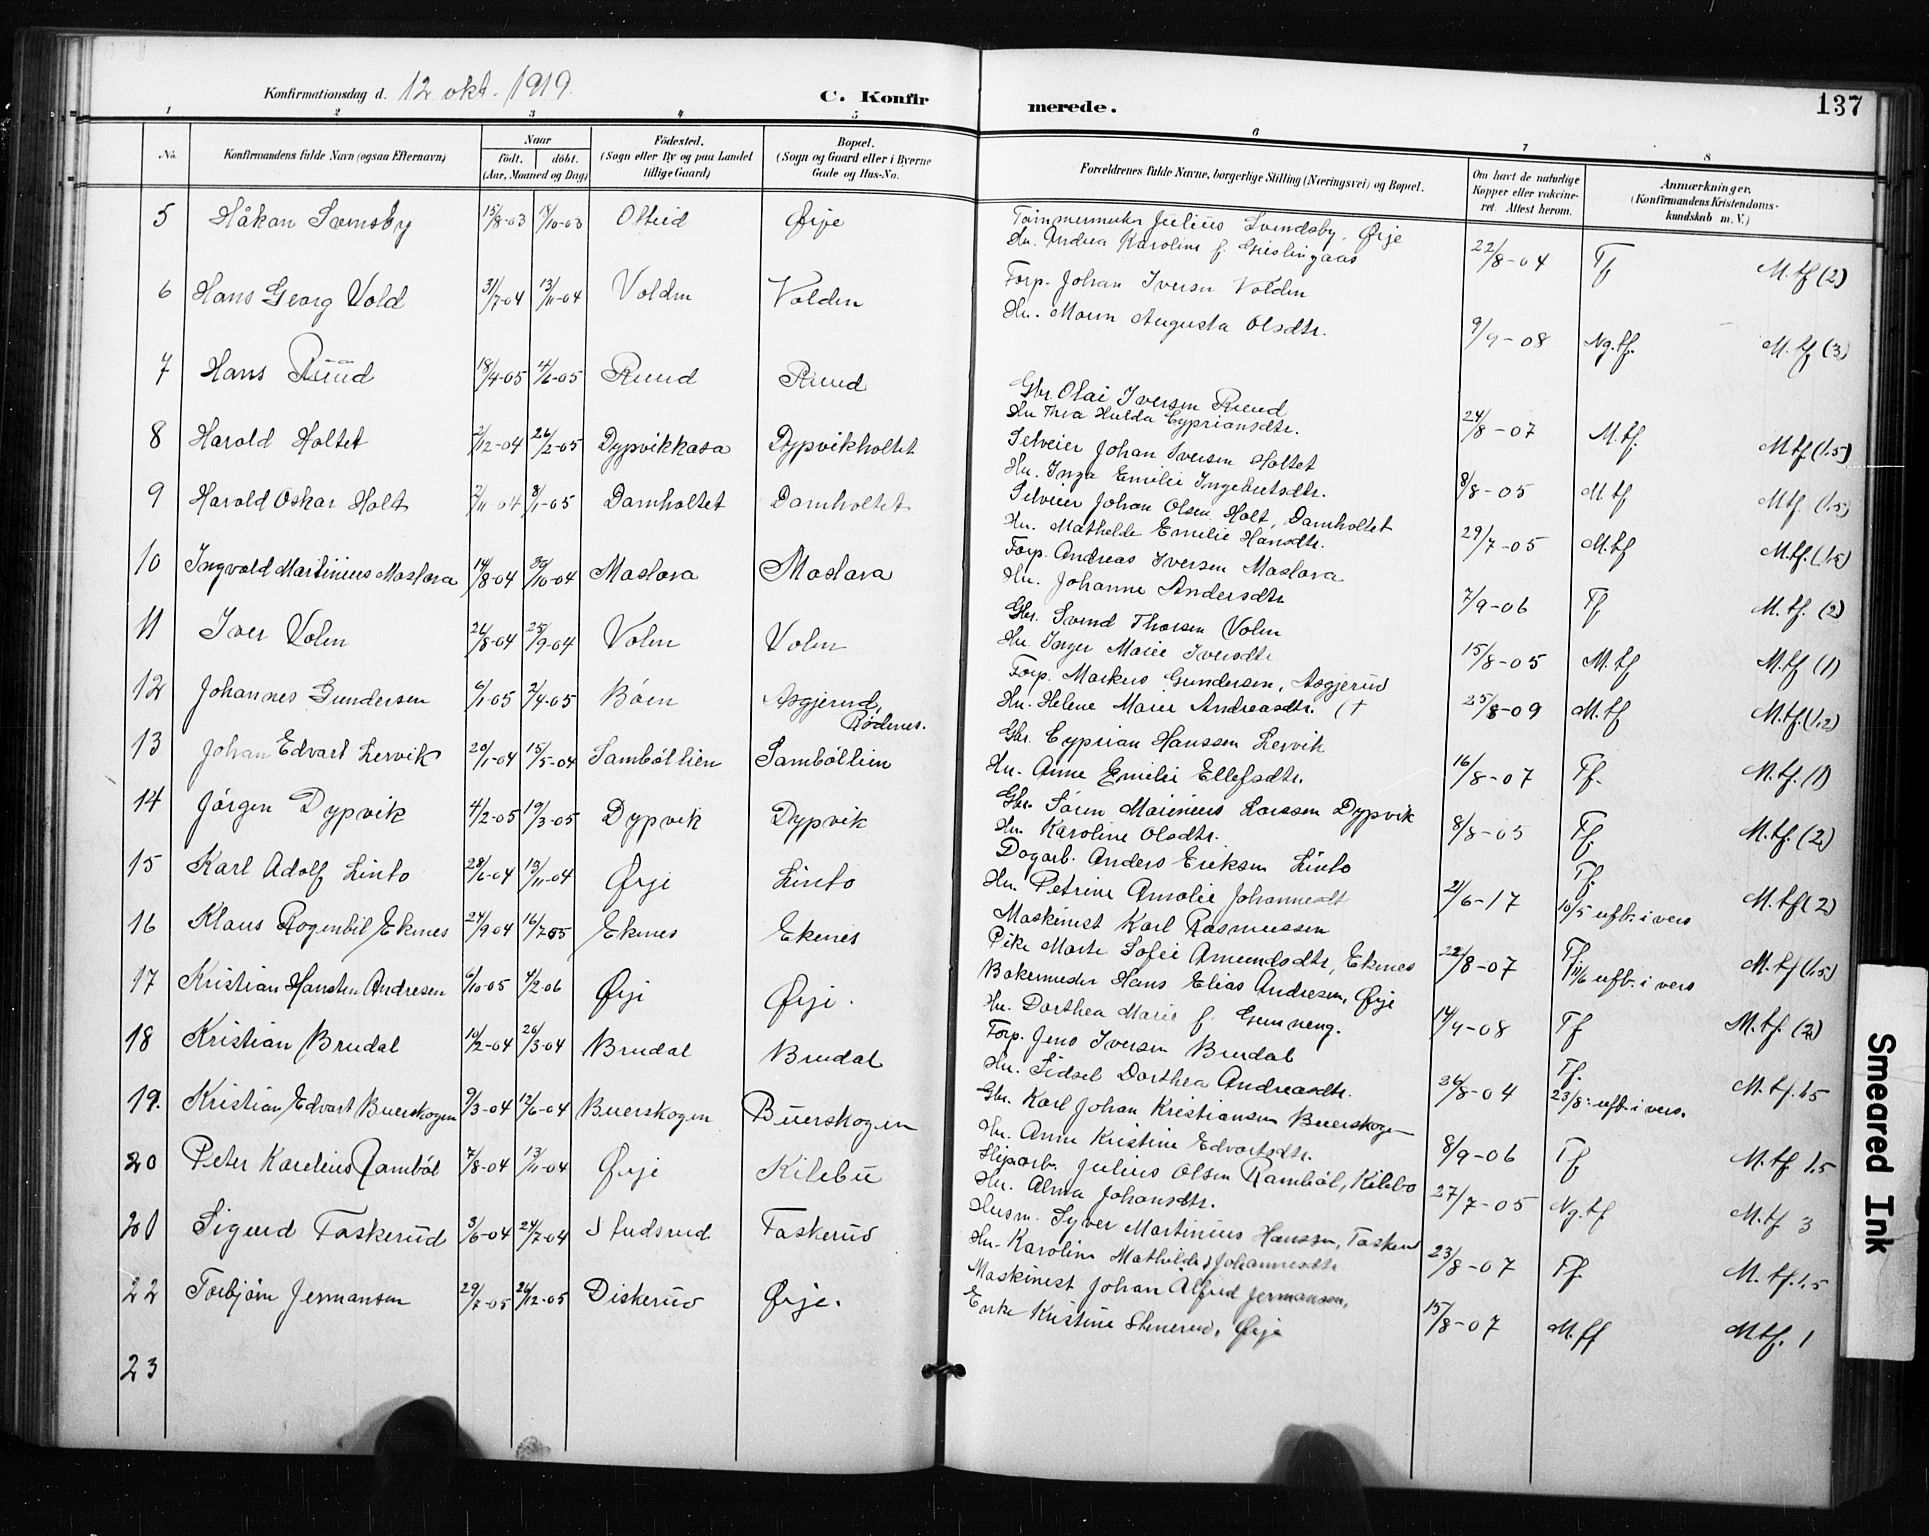 Konfirmationsdag d. 12. okt. 1919. C. Konfir merede. 137
1 2 3 4 5 6 7 8
No. Konfirmandens fulde Navn (ogsaa Efternavn) Naar født. døbt. (Aar, Maaned og Dag) Fødested. (Sogn eller By og paa Landet tillige Gaard) Bopæl. (Sogn og Gaard eller i Byerne Gade og Hus-No. Forældrenes fulde Navne, borgerlige Stilling (Næringsvei) og Bopæl. Om havt de naturlige Kopper eller vakcineret. Attest herom. Anmærkninger. (Konfirmandens Kristendomskundskab m. V.)
5 Håkan 15/8-03 18/10-03 Otteid Ørje Tømmermerker Julius Svendsby, Ørje
Hu. Andrea Karoline f. Gislingaas 22/8-04 Tf M.tf (2)
6 Hans Georg Vold 31/7-04 13/11-04 Volden Volden Forp. Johan Iversen Volden
Hu. Maren Augusta Olsdtr. 9/9-08 Ng.tf. M.tf (3)
7 Hans Ruud 18/4-05 4/6-05 Ruud Ruud Gbr. Olai Iversen Ruud
Hu Thea Hulda Cypriansdtr. 24/8-07 M.tf. M.tf (1.5)
8 Harald Holtet 2/12-04 26/2-05 Dypvikkasa Dypvikholtet Selveier Johan Iversen Holtet
Hu. Inga Emilie Ingebretsdtr. 8/8-05 M.tf M.tf (1.5)
9 Harald Oskar Holt 2/11-04 8/1-05 Damholtet Damholtet Selveier Johan Olsen Holt, Damholtet
Hu. Mathilde Emilie Hansdtr. 29/7-05 M.tf M.tf. (1.5)
10 Ingvald Martinius Maslara 14/8-04 30/10-04 Maslara Maslara Forp. Andreas Iversen Maslara
Hu. Johanne Andersdtr 7/9-06 Tf M.tf. (2)
11 Iver Volen 26/8-04 25/9-04 Volen Volen Gbr. Svend Thorsen Volen
Hu. Inger Marie Iversdtr 15/8-05 M.tf M.tf (1)
12 Johannes Gundersen 6/1-05 2/4-05 Bøen Asgjerud, Rødenes. Forp. Markus Gundersen, Asgjerud
Hu. Helene Marie Andreasdtr. (+ 25/8-09 M.tf M.tf (1.2)
13 Johan Edvart Lervik 20/1-04 15/5-04 Sambøllien Sambøllien Gbr. Cyprian Hanssen Lervik
Hu. Anne Emilie Ellefsdtr. 16/8-07 Tf. M.tf. (1)
14 Jørgen Dypvik 4/2-05 19/3-05 Dypvik Dypvik Gbr. Søren Marinius Larssen Dypvik
Hu. Karoline Olsdtr. 8/8-05 Tf. M.tf. (2)
15 Karl Adolf Linto 28/6-04 13/11-04 Ørje Linto Dagarb. Anders Eriksen Linto
Hu. Petrine Amalie Johannesdt 21/6-17 Tf. 10/5 ufb. i vers M.tf (2)
16 Klaus Rogenbil Ekenes 27/9 04 16/7-05 Ekenes Ekenes Maskinist Karl Rasmussen
Pike Marte Sofie Amundsdtr, Ekenes 22/8-07 Tf 11/6 ufb. i vers M.tf (1.5)
17 Kristian Hansten Andresen 6/10-05 4/2-06 Ørje Ørje. Bakermester Hans Elias Andresen, Ørje
Hu. Dorthea Marie f. Gunneng. 14/4-08 Tf M.tf. (2)
18 Kristian Brudal 10/2-04 20/3-04 Brudal Brudal Forp. Jens Iversen Brudal
Hu. Sidsel Dorthea Andreasdtr. 26/8-04 Tf. 23/8: ufb. i vers. M.tf. 1.5
19. Kristian Edvart Buerskogen 9/3-04 12/6-04 Buerskogen Buerskogen Gbr. Karl Johan Kristiansen Buerskogen
Hu. Anne Kristine Edvartsdtr. 8/9-06 Tf M.tf. 1.5
20 Peter Karelius Rambøl 7/8-04 13/11-04 Ørje Kilebu Sliparb. Julius Olsen Rambøl, Kilebo
Hu. Alma Johansdtr. 27/7-05 Ng.tf M.tf 3
21 Sigurd Taskerud 3/6-04 24/7-04 Studsrud Taskerud Husm. Syver Martinius Hanssen, Taskerud
Hu. Karoline Mathilde Johannesdtr 23/8-07 Tf. M.tf. 1.5
22 Torbjørn Jermansen 29/7-05 26/12-05 Diskerud Ørje. Maskinist Johan Alfred Jermansen,
Enke Kristine Stenerud, Ørje 15/8-07 M.tf M.tf. 1
23
Smeared Ink